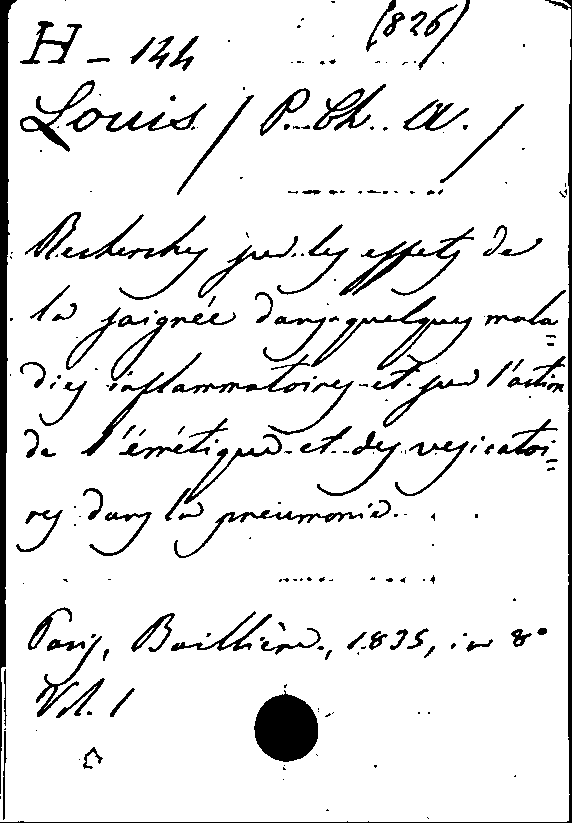 (826)
H - 144
Louis / P. Ch. A. /
Recherches sur les effets de
la saignée dans quelques mala=
dies inflammatoires et sur l'action
de l'émétique et des vesicatoi=
res dans la pneumonie.
Paris, Baillière, 1835, in 8°
Vol. 1